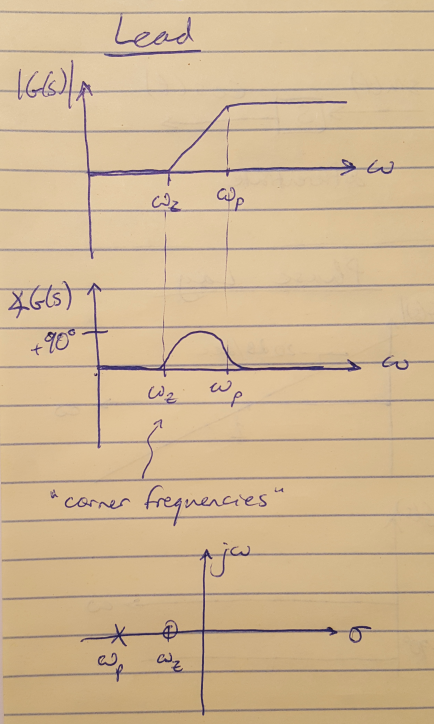 Lead
|G(s)|
ω
ω_z ω_p
∡G(s)
+90°
ω
ω_z ω_p
"corner frequencies"
jω
σ
ω_p ω_z